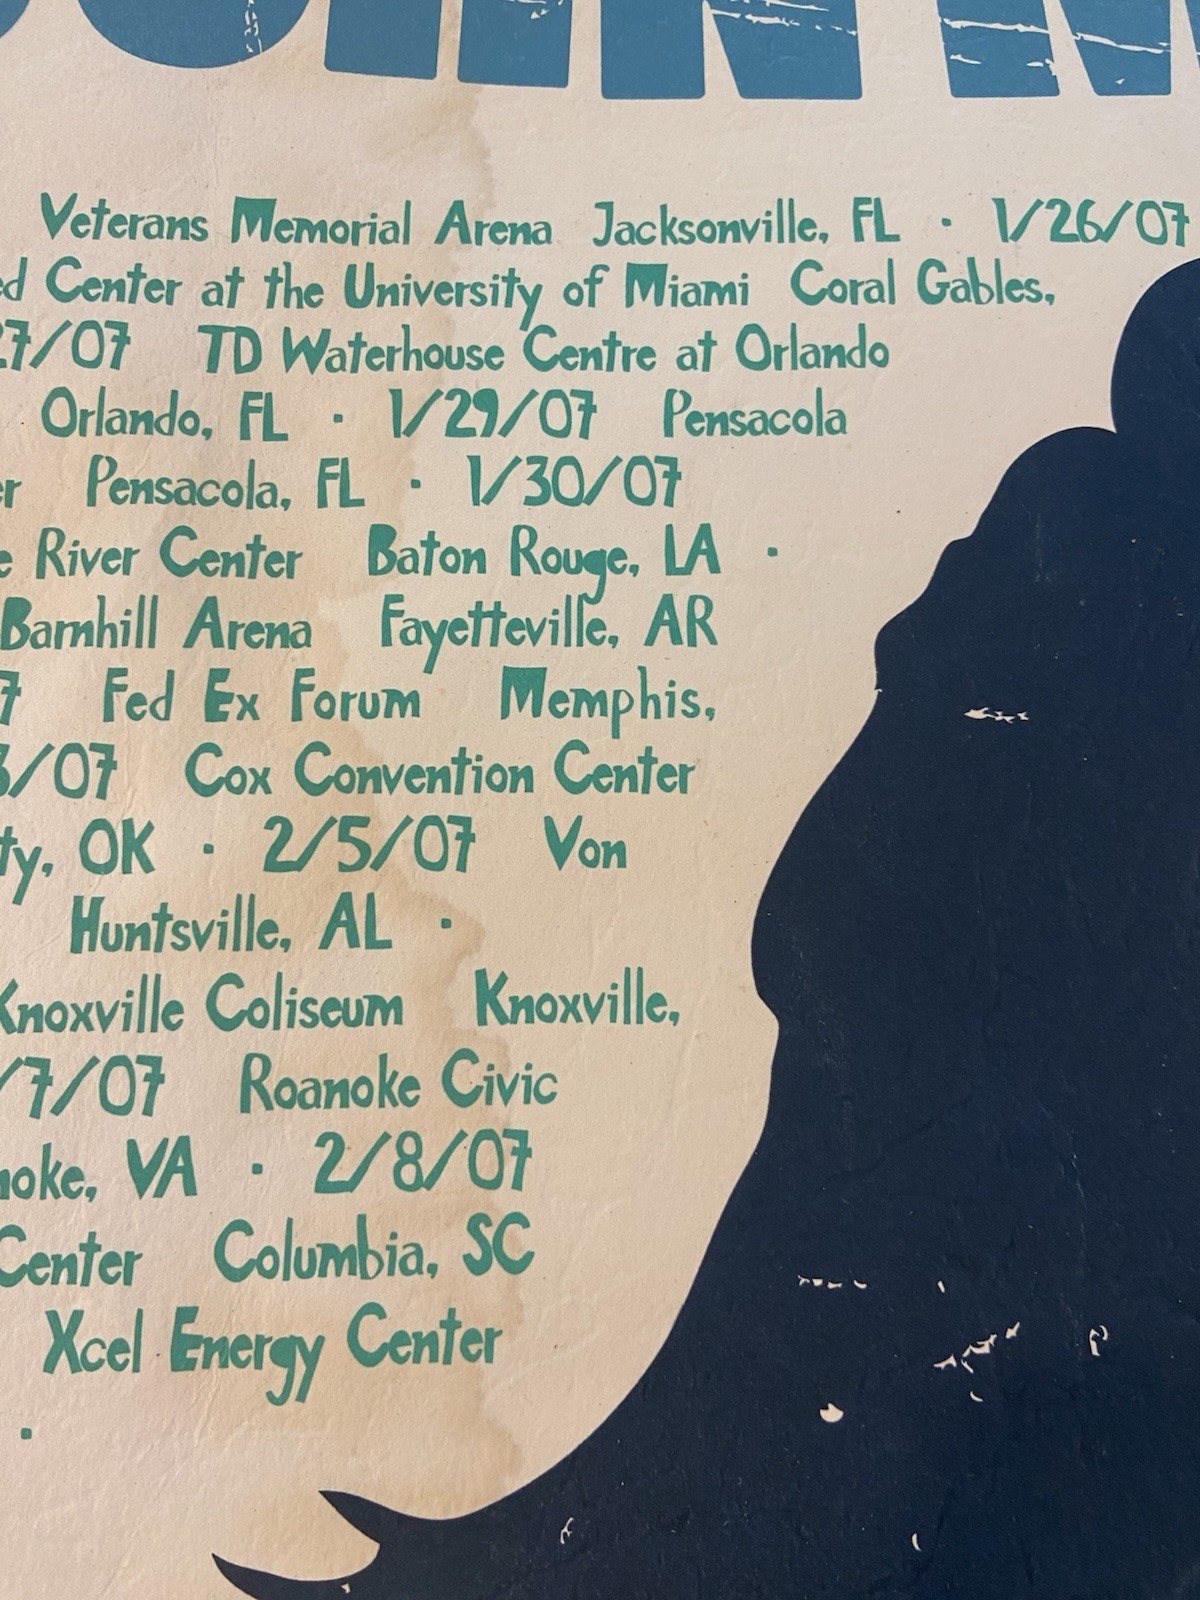 JOHN M
Veterans Memorial Arena Jacksonville, FL · 1/26/07
ed Center at the University of Miami Coral Gables,
27/07 TD Waterhouse Centre at Orlando
Orlando, FL · 1/29/07 Pensacola
er Pensacola, FL · 1/30/07
e River Center Baton Rouge, LA ·
Barnhill Arena Fayetteville, AR
7 Fed Ex Forum Memphis,
3/07 Cox Convention Center
ty, OK · 2/5/07 Von
Huntsville, AL ·
Knoxville Coliseum Knoxville,
/7/07 Roanoke Civic
noke, VA · 2/8/07
Center Columbia, SC
Xcel Energy Center
·